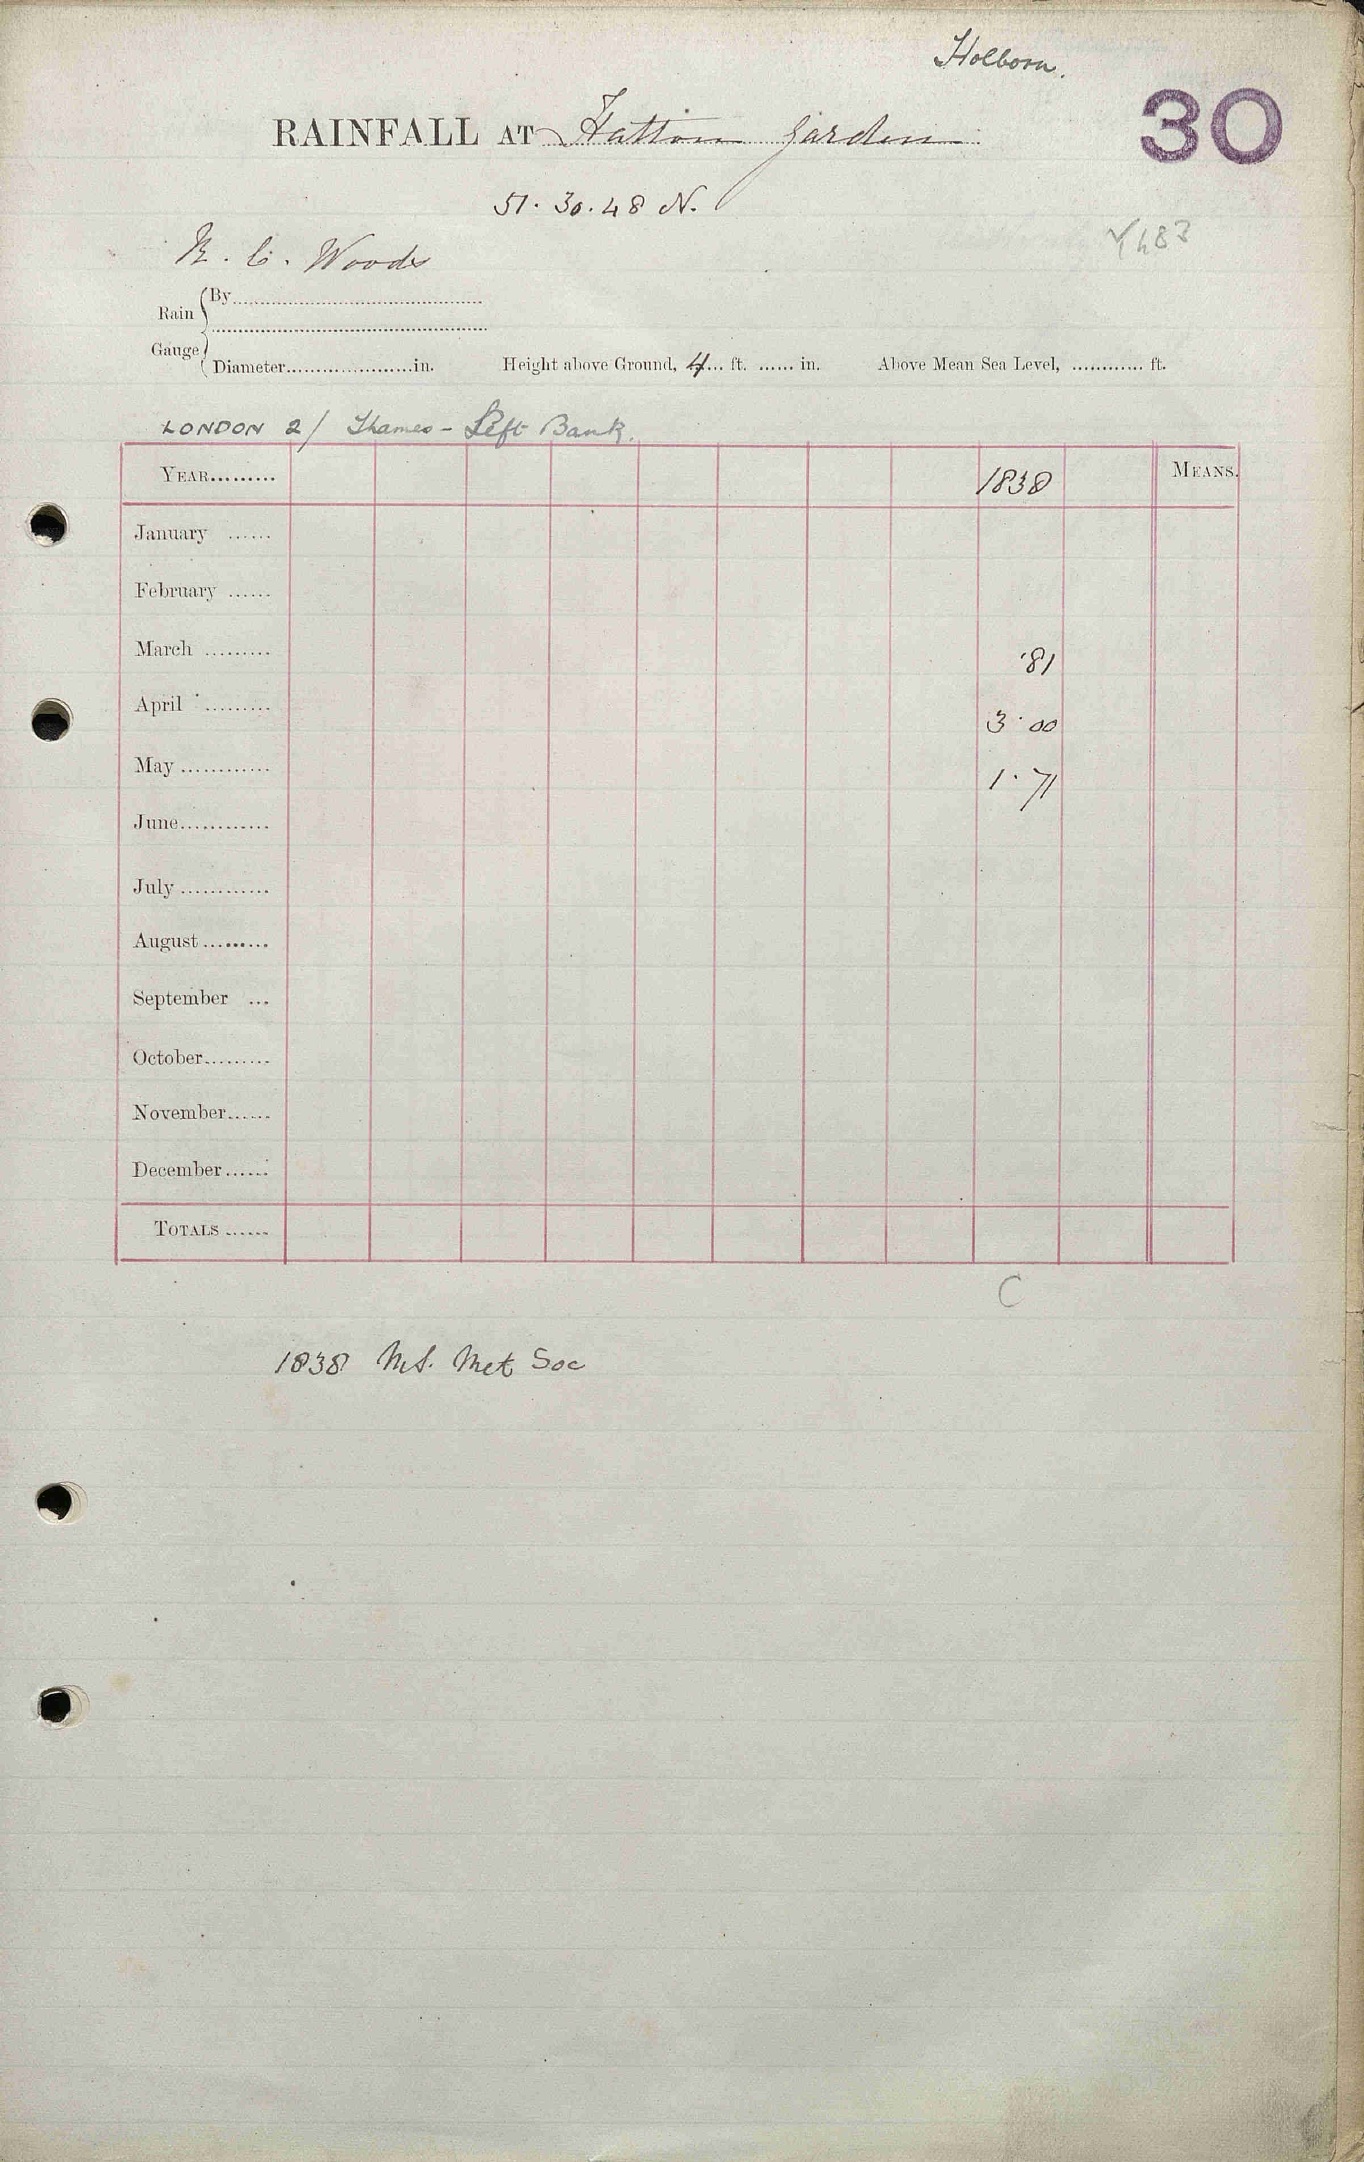 Holborn.
RAINFALL AT Hatton Garden 30
51. 30. 48 N.
C. Woods
Rain Gauge { By..........
Diameter..........in. Height above Ground, 4... ft. ...... in. Above Mean Sea Level, ............ ft.
LONDON 2/ Thames - Left Bank.
YEAR......... 1838 MEANS.
January ......
February ......
March ......... ·81
April ......... 3·00
May ............ 1·71
June............
July ............
August .........
September ...
October.........
November......
December......
TOTALS ......
C
1838 MS. Met Soc